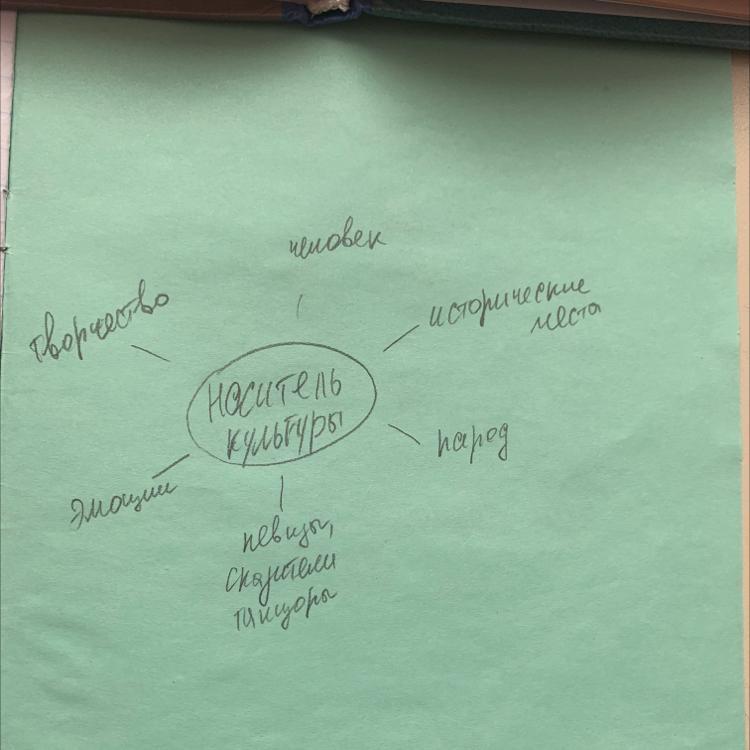 человек
творчество
исторические
места
носитель
культуры
народ
эмоции
певцы,
сказители
танцоры